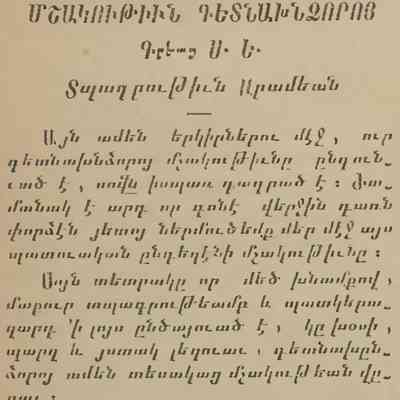 ՄՇԱԿՈՒԹԻՒՆ ԳԵՏՆԱԽՆՁՈՐՈՅ
Գրեաց Ս. Ե.
Տպագրութիւն Արամեան
Այն ամեն երկիրներու մէջ, ուր
գետնախնձորոյ մշակութիւնը ընդուն-
ւած է, սովը իսպառ դադրած է։ Ժա-
մանակ է արդ որ գոնէ վերջին դառն
փորձէն յետոյ ներմուծեմք մեր մէջ այս
պատուական ընդեղէնի մշակութիւնը։
Այն տետրակը որ մեծ խնամքով,
մաքուր տպագրութեամբ և պատկերա-
զարդ ՚ի լոյս ընծայուած է, կը խօսի,
պարզ և յստակ լեզուաւ, գետնախըն-
ձորոյ ամեն տեսակաց մշակութեան վը-
րայ։